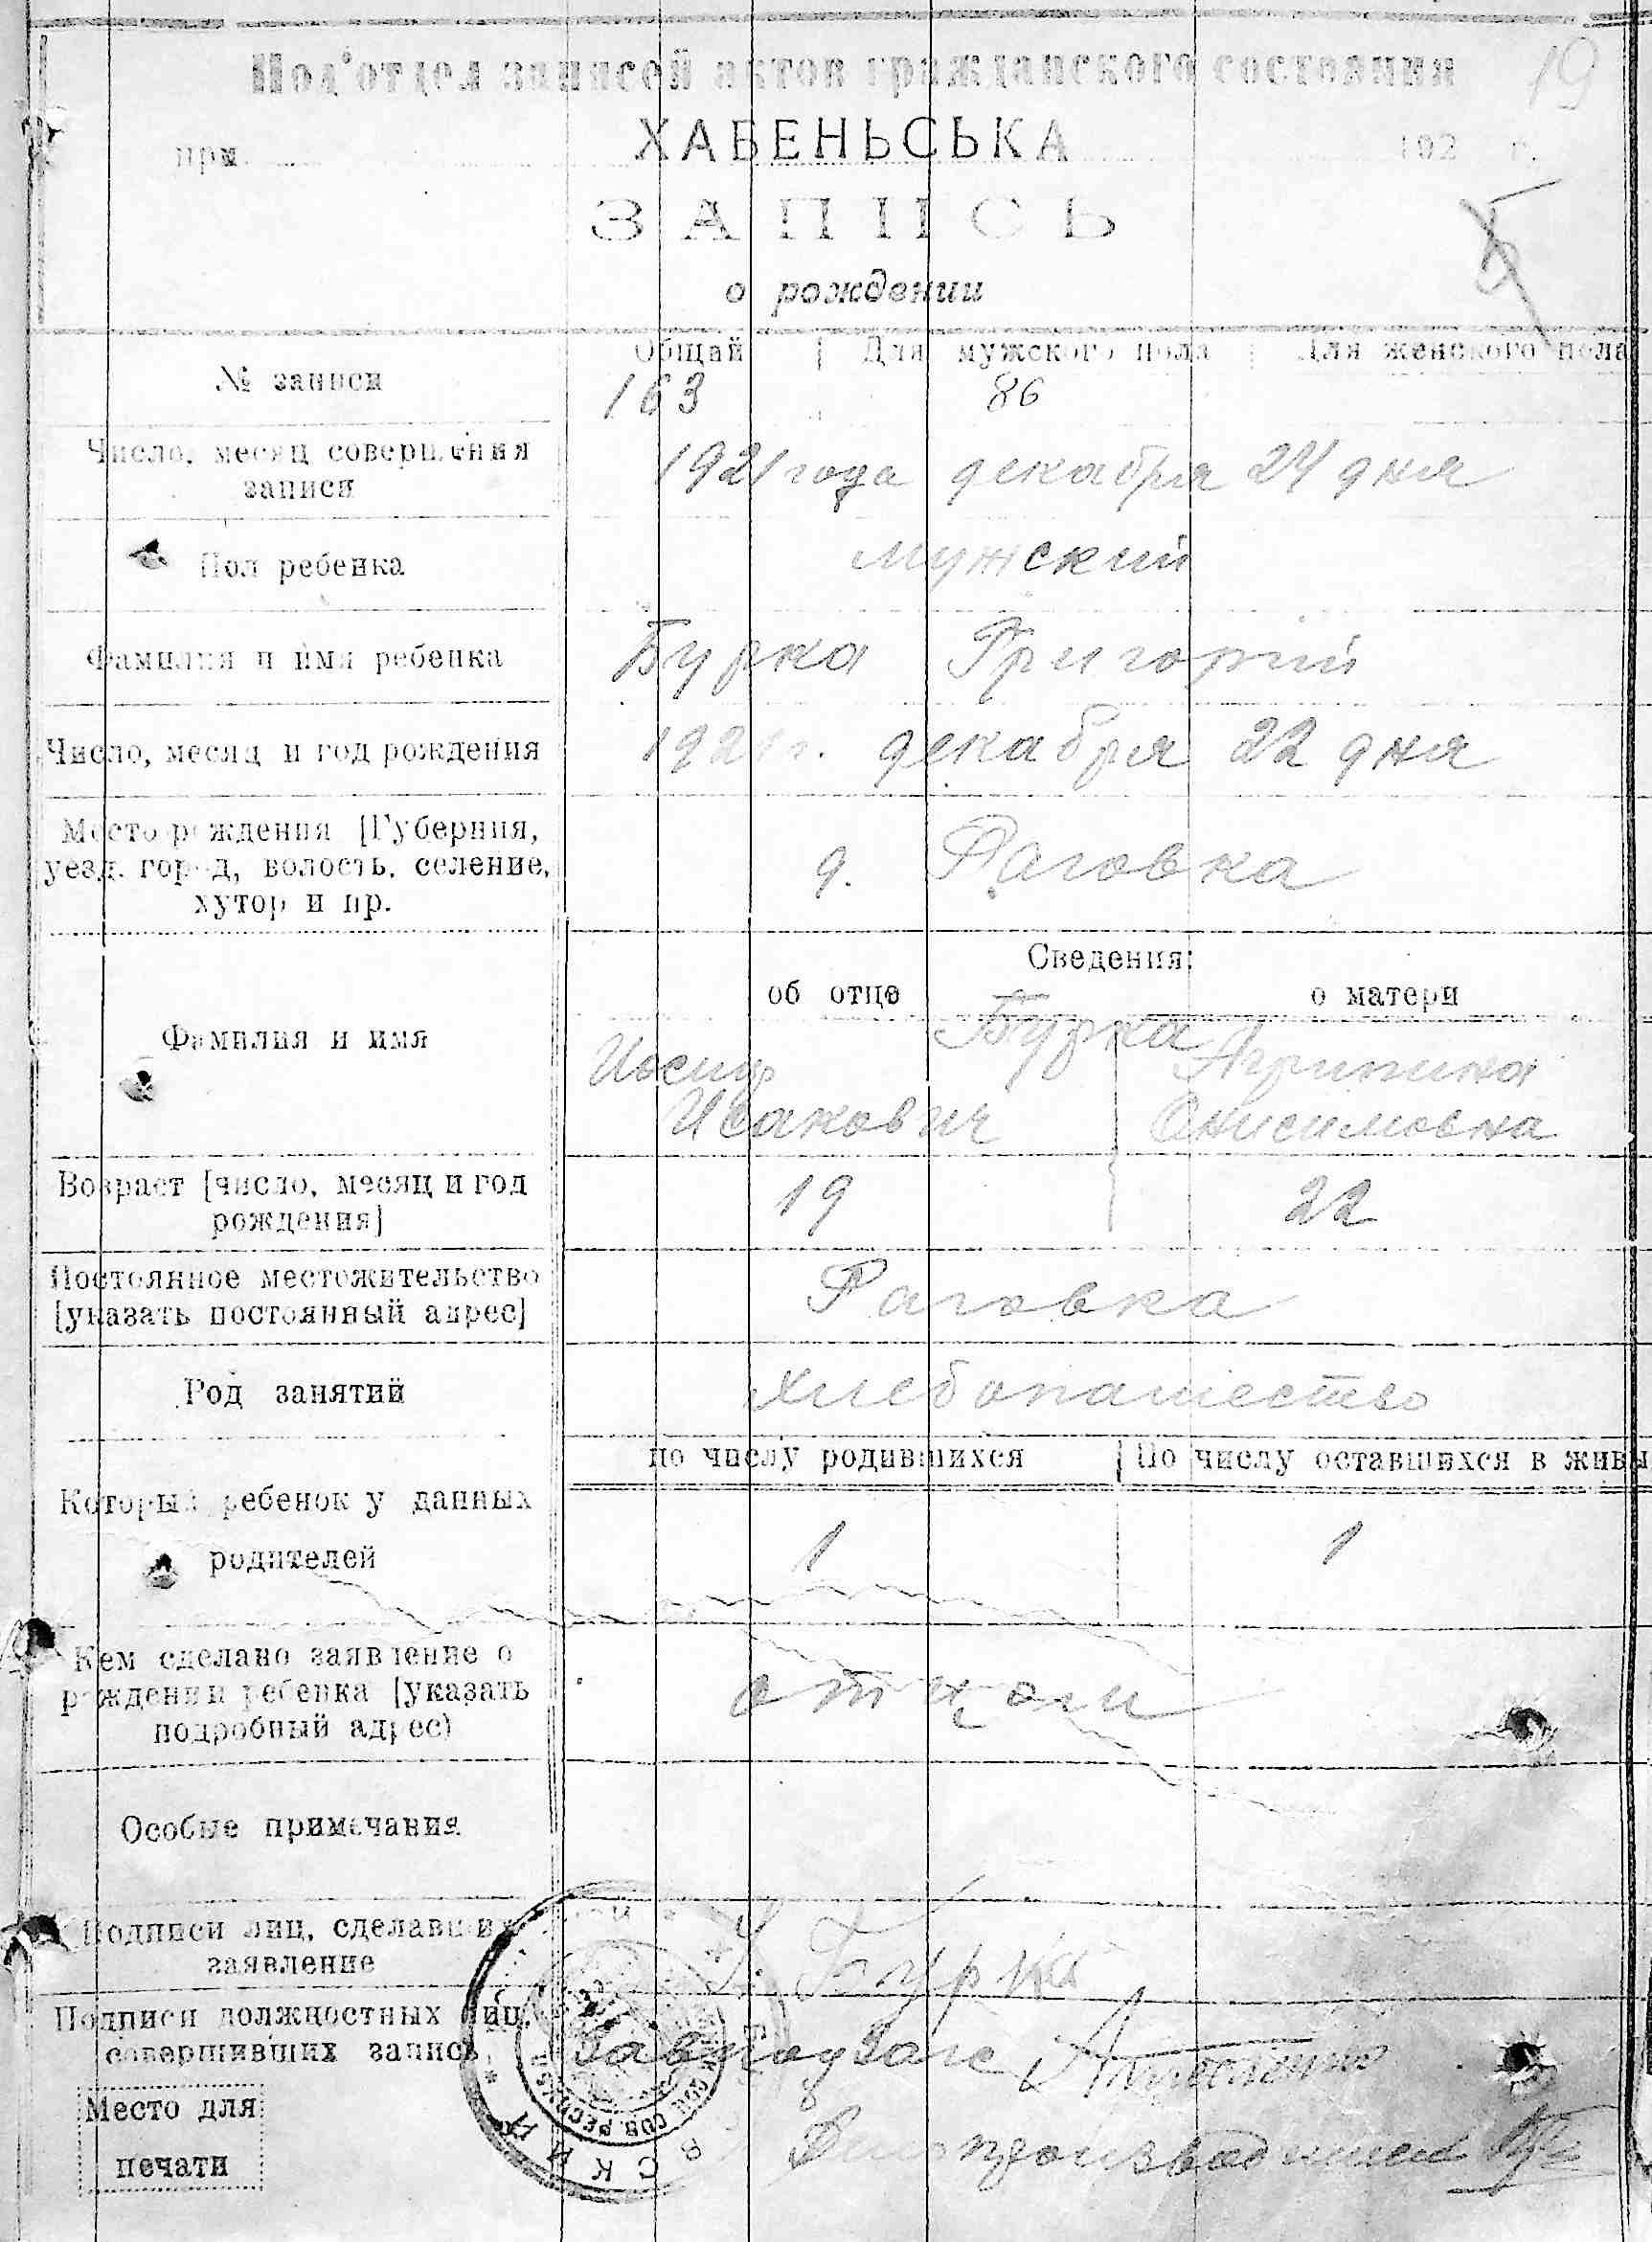 19
Под'отдел записей актов гражданского состояния
при ХАБЕНЬСЬКА 192 г.
ЗАПИСЬ
о рождении
Общий | Для мужского пола | Для женского пола
№ записи 163 86
Число, месяц совершения 1921 года декабря 24 дня
записи
Пол ребенка мужский
Фамилия и имя ребенка Бурка Григорий
Число, месяц и год рождения 1921 г. декабря 22 дня
Место рождения [Губерния,
уезд, город, волость, селение, д. Раговка
хутор и пр.
Сведения:
об отце о матери
Фамилия и имя Бурка
Иосиф Агрипина
Исакович Онисимовна
Возраст [число, месяц и год 19 22
рождения]
Постоянное местожительство Раговка
[указать постоянный адрес]
Род занятий хлебопашество
по числу родившихся | По числу оставшихся в живы
Который ребенок у данных 1 1
родителей
Кем сделано заявление о
рождении ребенка [указать отцом
подробный адрес)
Особые примечания
Подписи лиц, сделавших Бурка
заявление
Подписи должностных лиц, Завподзагс
совершивших запись
Место для Делопроизводитель
печати